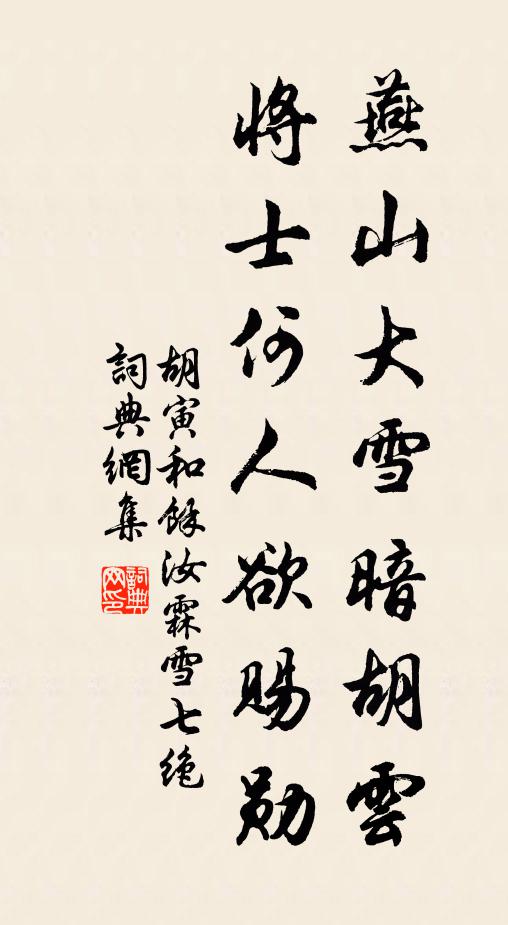 燕山大雪暗胡雲
將士何人欲賜勛
胡寅和餘汝霖雪七絕
詞典網集
詞典網印